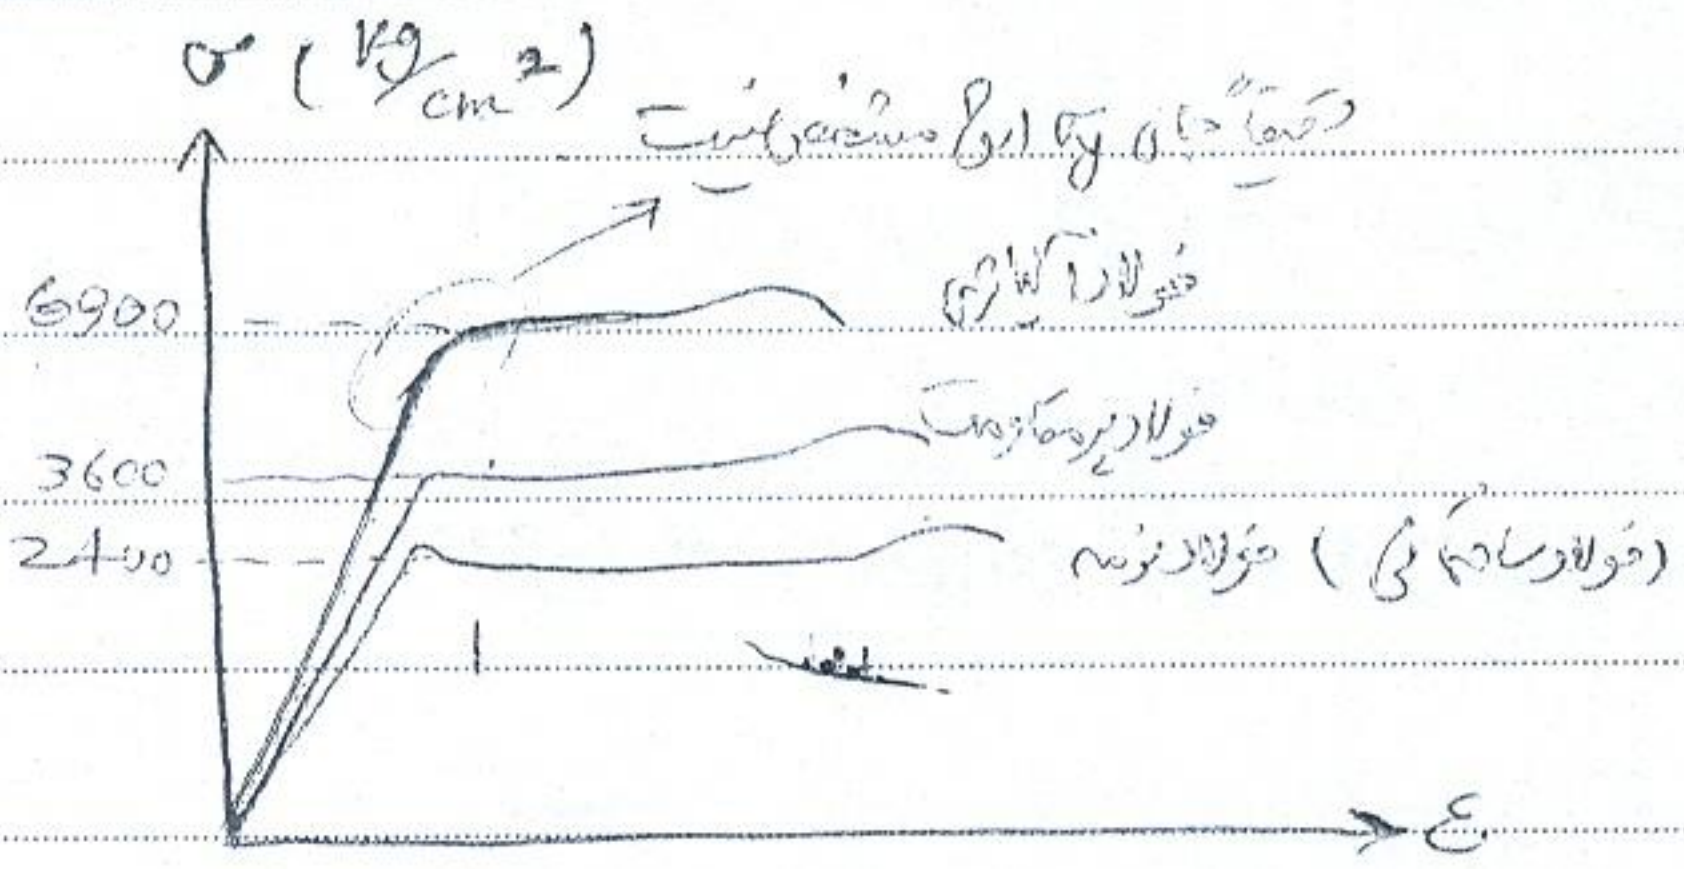 σ (kg/cm²)
دقیقاً جای Fy این مشخص نیست
6900
فولاد آلیاژی
فولاد پر مقاومت
3600
2400
فولاد نرمه (فولاد ساختمانی)
ε